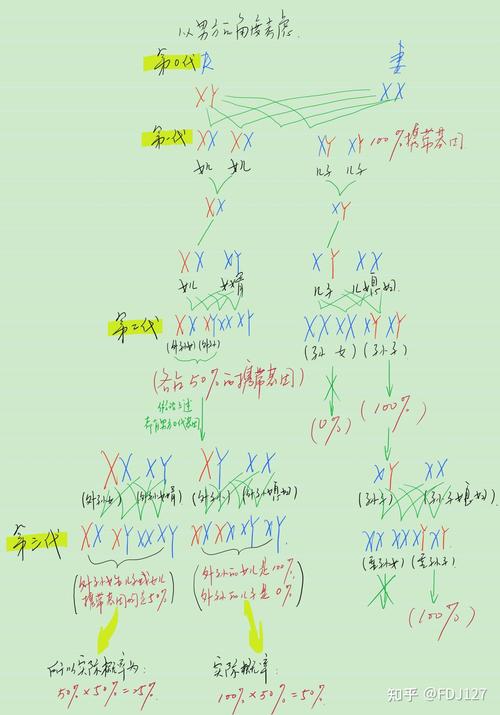 以男方的角度考虑.
第0代 夫 妻
XY XX
第一代 XX XX XY XY 100%携带基因
女儿 女儿 儿子 儿子
XX XY
XX XY XY XX
女儿 女婿 儿子 儿媳妇
第二代 XX XY XX XY XX XX XY XY
(外孙女) (外孙) (孙女) (孙子)
(各占50%的携带基因)
(0%) (100%)
XX XY XY XX XY XX
(外孙女) (外孙女婿) (外孙) (外孙媳妇) (孙子) (孙子媳妇)
第三代 XX XY XX XY XX XX XY XY XX XX XY XY
(重孙女) (重孙子)
(外孙女生儿子或女儿
携带基因的是50%)
(外孙的女儿是100%
外孙的儿子是0%)
(100%)
所以实际概率为: 实际概率:
50%×50%=25% 100%×50%=50%
知乎 @FDJ127